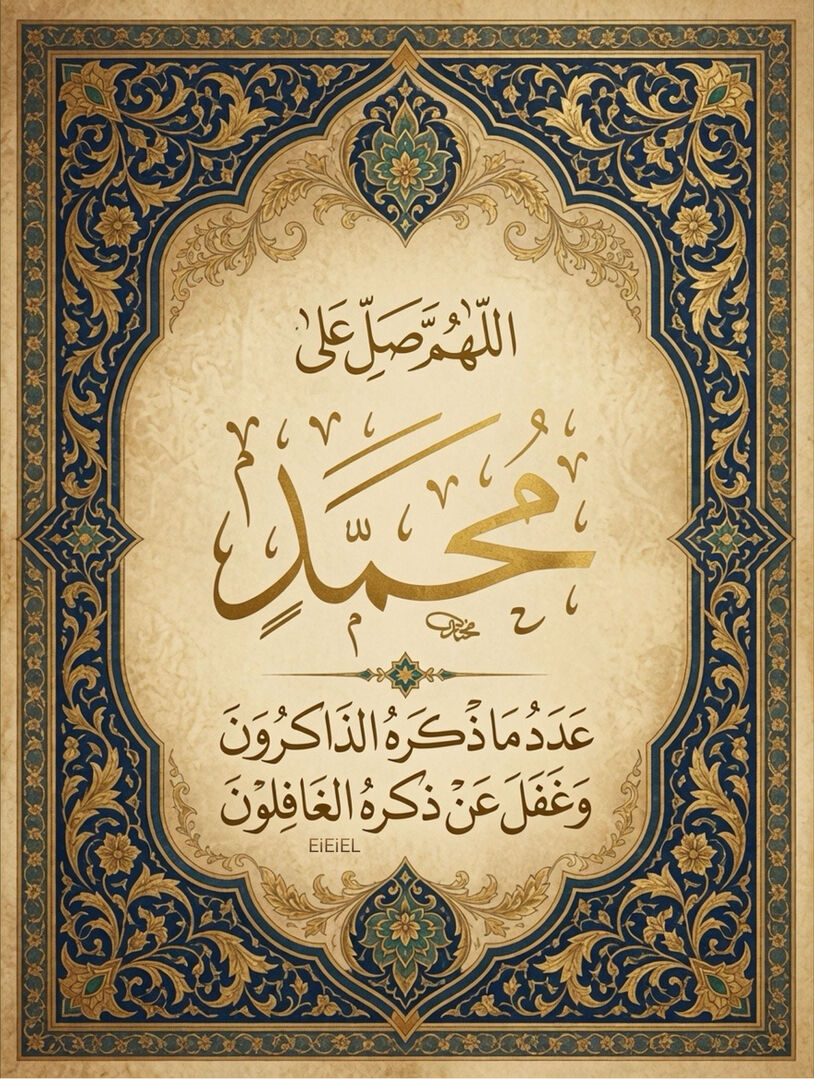 اللّهُمَّ صَلِّ عَلىٰ
مُحَمَّدٍ
عَدَدُ مَا ذْكَرَهُ الذَاكرُوَنَ
وَغَفَلَ عَنْ ذكرهُ الغَافِلوْنَ
EiEiEL